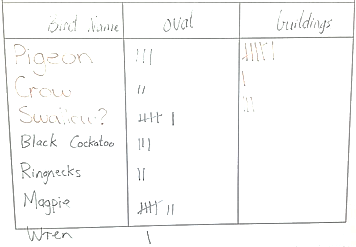 Bird Name oval buildings
Pigeon ||| 卌 |
Crow || |
Swallow? 卌 | |||
Black Cockatoo |||
Ringnecks ||
Magpie 卌 ||
Wren |